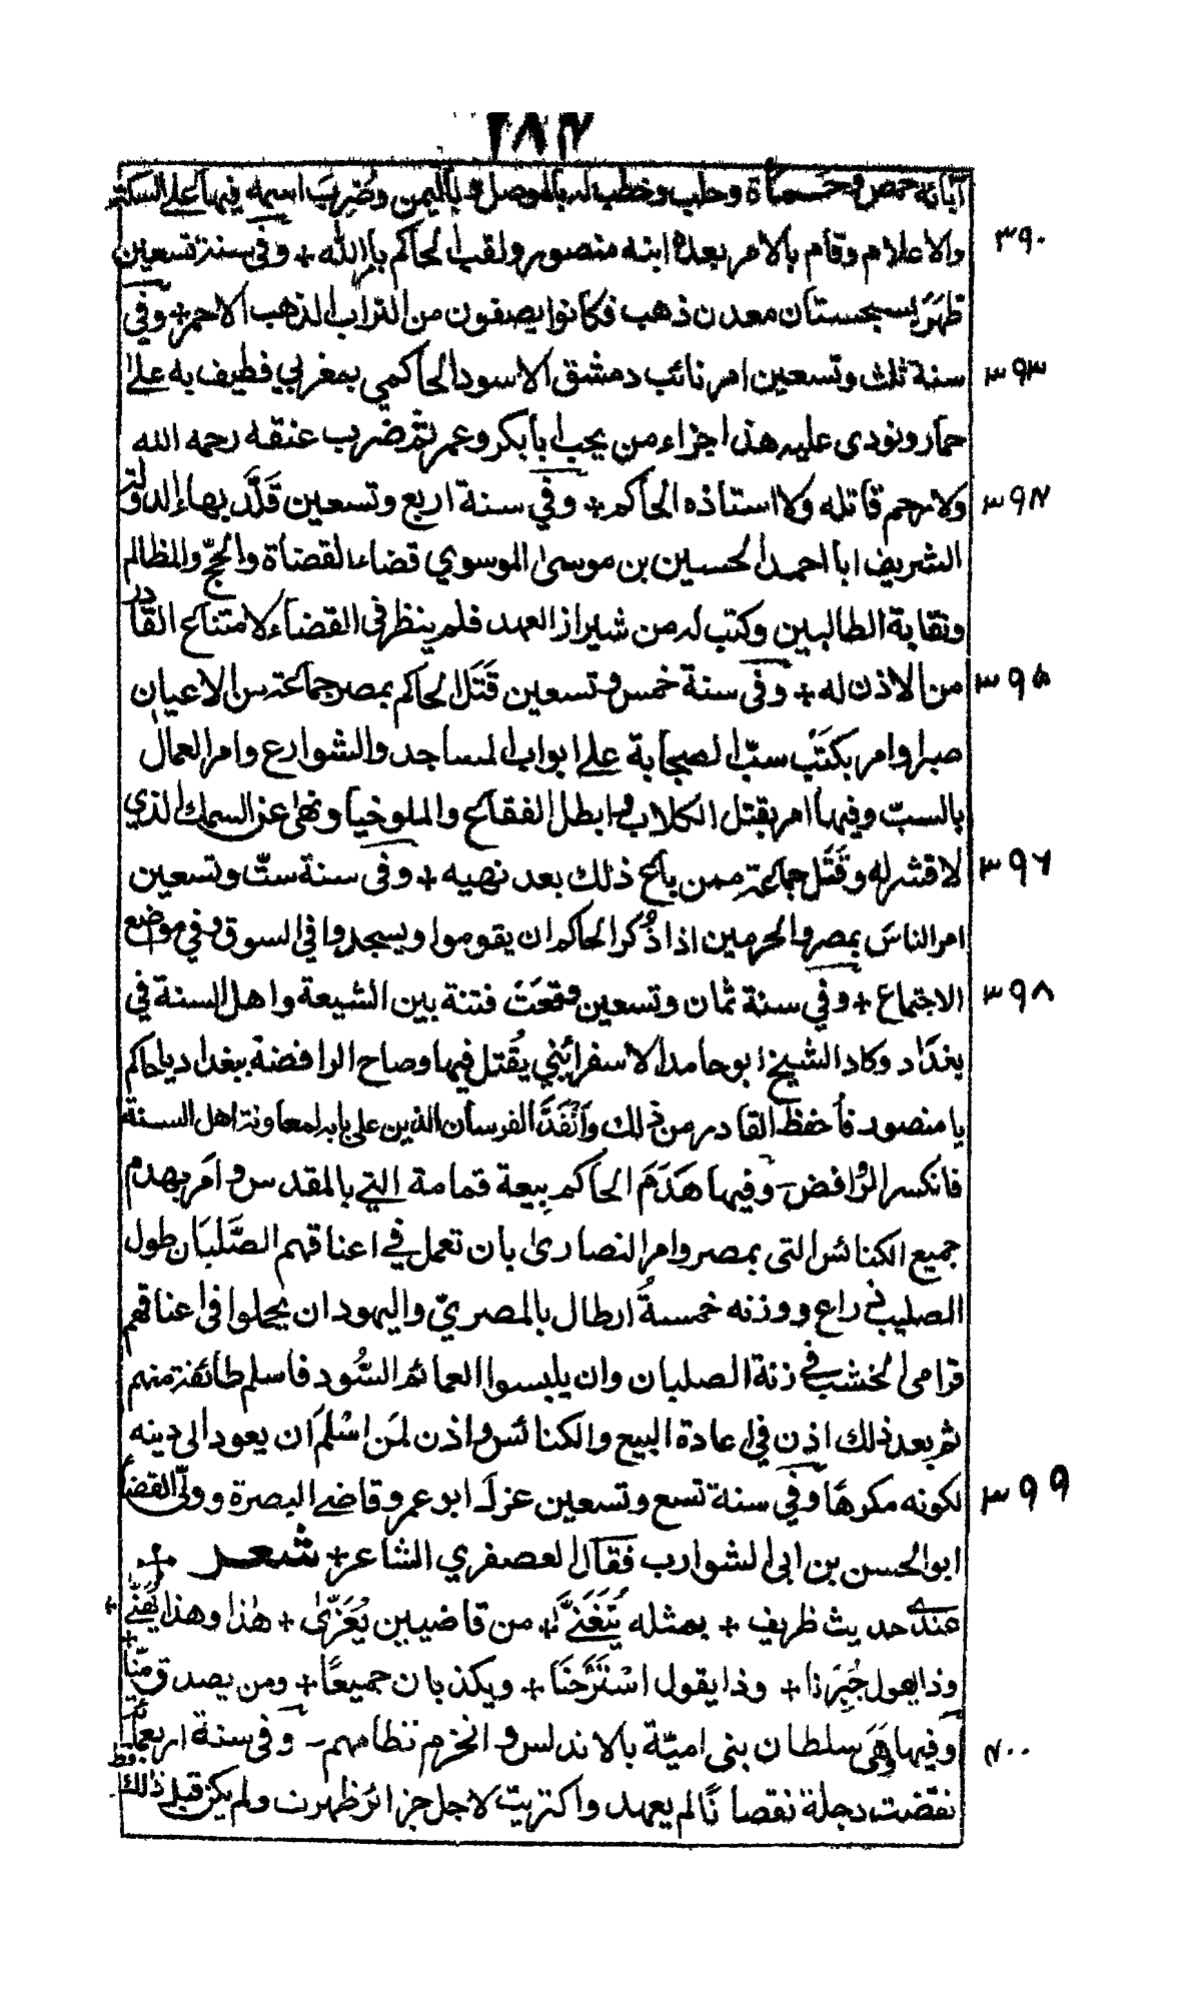 ٢٨٤
آبائه حمص وحماة وحلب وخطب له بالموصل وباليمن وضُرِبَ اسمه فيها على السكة
والاعلام وقام بالامر بعده ابنه منصور ولقب الحاكم بامر الله + وفى سنة تسعين ٣٩٠
ظهَرَ بسجستان معدن ذهب فكانوا يصفون من التراب الذهب الاحمر + وفي
سنة ثلث وتسعين امر نائب دمشق الاسود الحاكمي بمغربي فطيف به على ٣٩٣
حمار ونودى عليه هذا جزاء من يحب ابا بكر وعمر ثم ضرب عنقه رحمه الله
ولا رحم قاتله ولا استاذه الحاكم + وفي سنة اربع وتسعين قَلَّدَ بهاء الدولة ٣٩٤
الشريف ابا احمد الحسين بن موسى الموسوي قضاء القضاة والحجّ والمظالم
ونقابة الطالبين وكتب له من شيراز العهد فلم ينظر فى القضاء لامتناع القادر
من الاذن له + وفى سنة خمس وتسعين قَتَلَ الحاكم بمصر جماعة من الاعيان ٣٩٥
صبرا وامر بكَتْبِ سبّ الصحابة على ابواب المساجد والشوارع وامر العمال
بالسبّ وفيها امر بقتل الكلاب وابطل الفقاع والملوخيا ونهى عن السمك الذي
لا قشر له وقَتَل جماعة ممن باع ذلك بعد نهيه + وفى سنة ستّ وتسعين ٣٩٦
امر الناسَ بمصر والحرمين اذا ذُكر الحاكم ان يقوموا ويسجدوا في السوق وفي موضع
الاجتماع + وفي سنة ثمان وتسعين وقعَتْ فتنة بين الشيعة واهل السنة في ٣٩٨
بغداد وكاد الشيخ ابو حامد الاسفرائيني يُقتل فيها وصاح الرافضة ببغداد يا حاكم
يا منصور فأحفظ القادر من ذلك وأنْفَذَ الفرسان الذين على بابه لمعاونة اهل السنة
فانكسر الرَّوافض - وفيها هَدَمَ الحاكم بيعة قمامة التي بالمقدس وامر بهدم
جميع الكنائس التى بمصر وامر النصارى بان تعمل في اعناقهم الصُّلبَان طول
الصليب ذراع ووزنه خمسةُ ارطال بالمصريّ واليهود ان يحملوا فى اعناقهم
قرامى الخشب في زنة الصلبان وان يلبسوا العمائم السُّود فاسلم طائفة منهم
ثم بعد ذلك اذن في اعادة البيع والكنائس واذن لمن اسْلَمَ ان يعود الى دينه
لكونه مكرهًا وفي سنة تسع وتسعين عزل ابو عمر وقاضى البصرة وولّى القضاء ٣٩٩
ابو الحسن بن ابى الشوارب فقال العصفري الشاعر + شعر +
عندى حديث ظريف + بمثله يُتَغَنَّى + من قاضيين يُعَزّى + هذا وهذا يُهَنّى +
وذا يقول جُبِرْنا + وذا يقول اسْتَرَحْنَا + ويكذبان جميعًا + ومن يصدق منّا +
وفيها وَهَى سلطان بنى اميّة بالاندلس وانخرم نظامهم - وفى سنة اربعمائة ٤٠٠
نقصت دجلة نقصانًا لم يعهد واكتريت لاجل جزائر ظهرت ولم يكن قبل ذلك قط